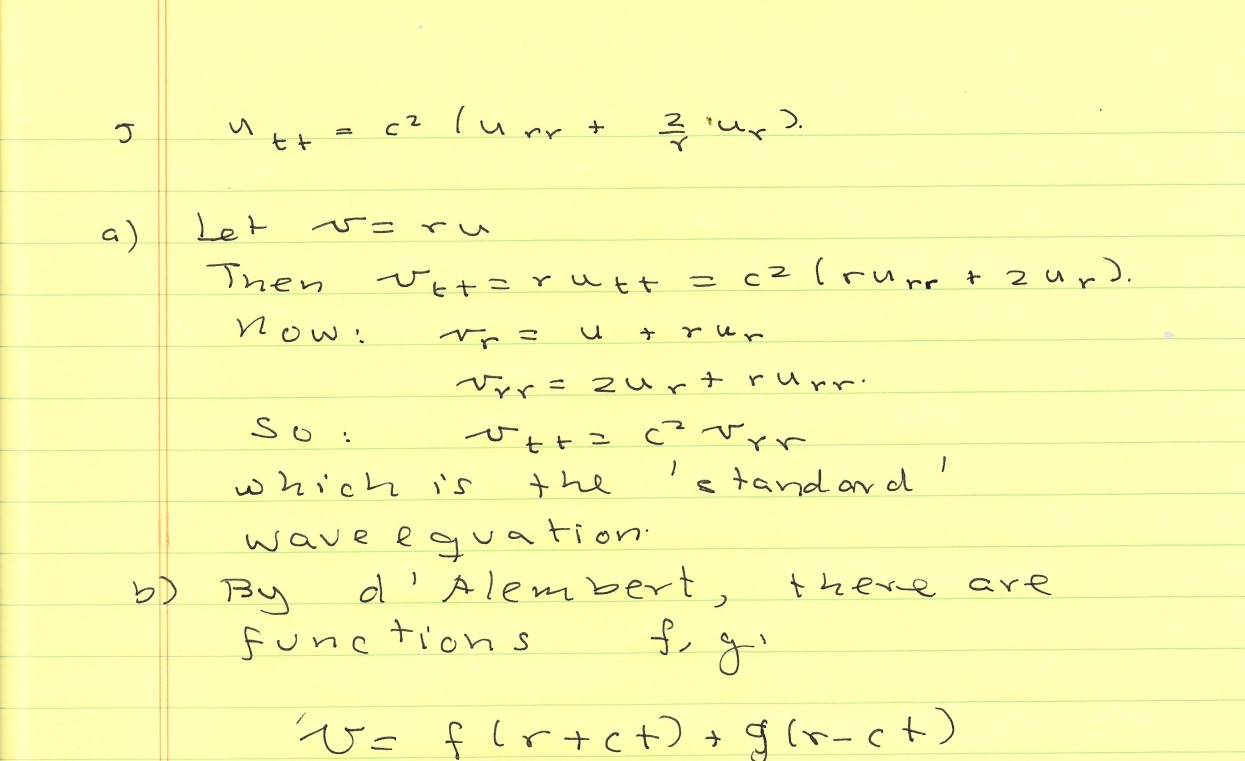 J u_tt = c² (u_rr + 2/r u_r).
a) Let v = ru
Then v_tt = r u_tt = c² (r u_rr + 2 u_r).
Now: v_r = u + r u_r
v_rr = 2u_r + r u_rr.
So: v_tt = c² v_rr
which is the 'standard'
wave equation.
b) By d'Alembert, there are
functions f, g,
v = f(r+ct) + g(r-ct)